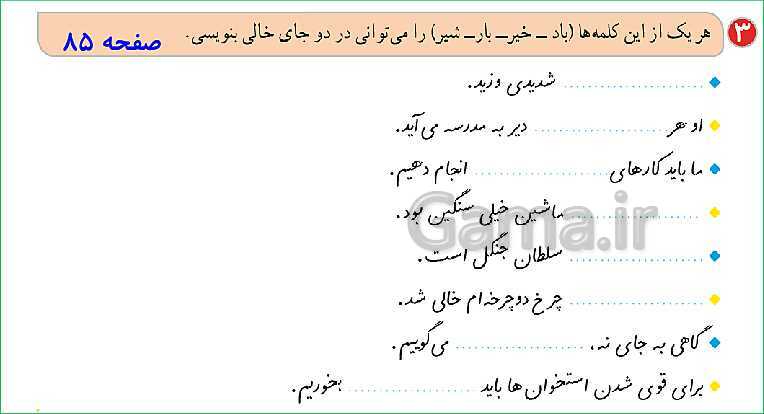 ۳ هر یک از این کلمه‌ها (باد ـ خیرـ بارـ شیر) را می‌توانی در دو جای خالی بنویسی. صفحه ۸۵
.................... شدیدی وزید.
او هر .................... دیر به مدرسه می‌آید.
ما باید کارهای .................... انجام دهیم.
.................... ماشین خیلی سنگین بود.
Gama.ir
.................... سلطان جنگل است.
.................... چرخ دوچرخه‌ام خالی شد.
گاهی به جای نه، .................... می‌گوییم.
برای قوی شدن استخوان‌ها باید .................... بخوریم.